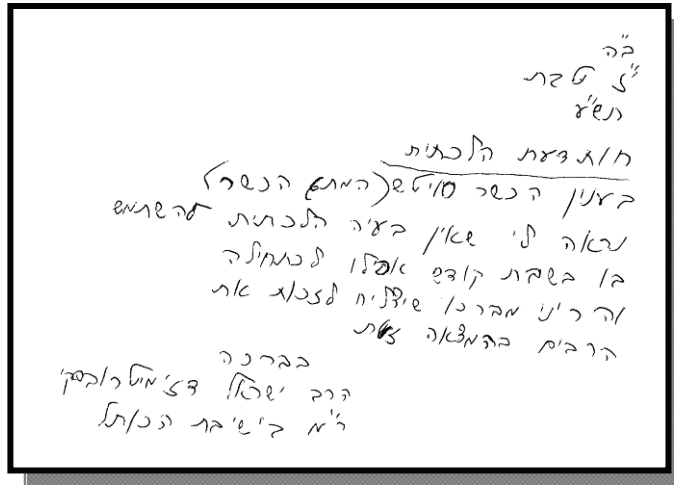 ב"ה
י"ז טבת
תש"ע
חוות דעת הלכתית
בענין הכשר סוויטש (המתג הכשר)
נראה לי שאין בעיה הלכתית להשתמש
בו בשבת קודש אפילו לכתחילה
והריני מברכו שיצליח לזכות את
הרבים בהמצאה זאת
בברכה
הרב ישראל דז'מיטרובסקי
ר"מ בישיבת הכותל